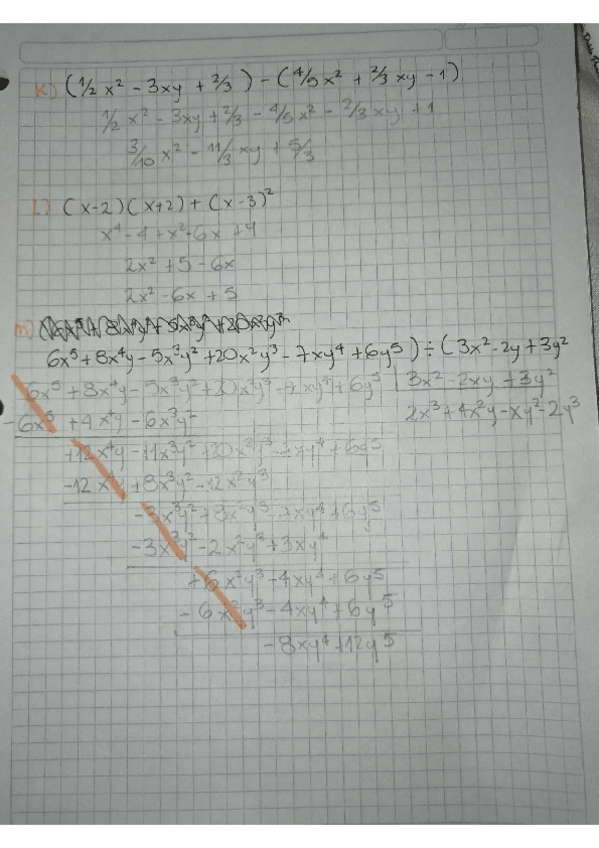 K) (1/2 x² - 3xy + 2/3) - (4/5 x² + 2/3 xy - 1)
1/2 x² - 3xy + 2/3 - 4/5 x² - 2/3 xy + 1
3/10 x² - 11/3 xy + 5/3
L) (x-2)(x+2) + (x-3)²
2x² + 5 - 6x
2x² - 6x + 5
m)
6x⁵ + 8x⁴y - 5x³y² + 20x²y³ - 7xy⁴ + 6y⁵) ÷ (3x² - 2y + 3y²
6x⁵ + 8x⁴y - 5x³y² + 20x²y³ - 7xy⁴ + 6y⁵ | 3x² - 2xy + 3y²
-6x⁵ + 4x⁴y - 6x³y² 2x³ + 4x²y - xy² - 2y³
+12x⁴y - 11x³y² + 20x²y³ - 7xy⁴ + 6y⁵
-12x⁴y + 8x³y² - 12x²y³
-3x³y² + 8x²y³ - 7xy⁴ + 6y⁵
-3x³y² - 2x²y³ + 3xy⁴
+6x²y³ - 4xy⁴ + 6y⁵
-6x²y³ - 4xy⁴ + 6y⁵
-8xy⁴ + 12y⁵